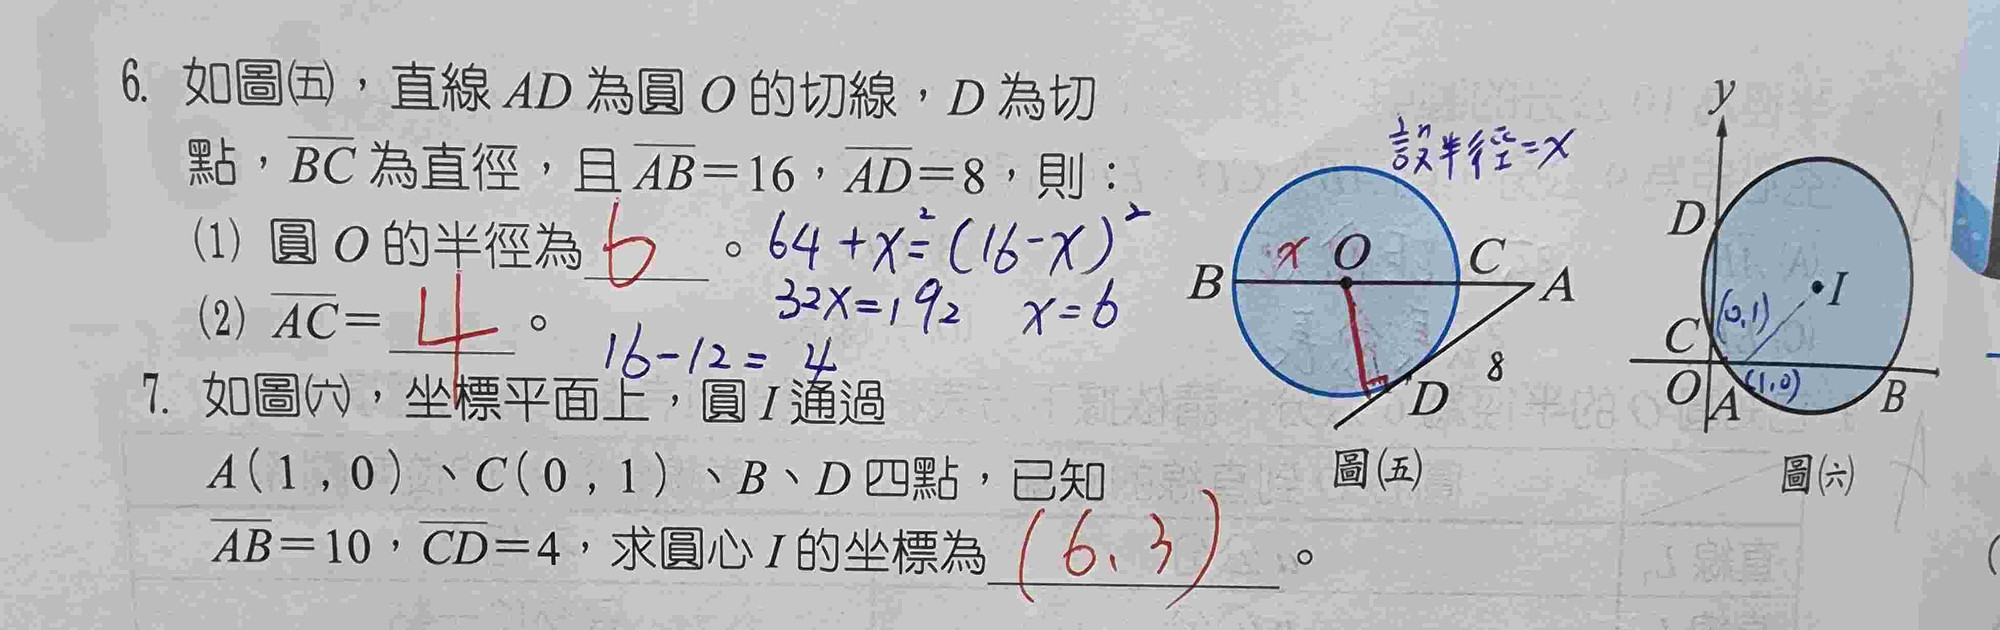 6. 如圖㈤，直線 AD 為圓 O 的切線，D 為切
點，BC 為直徑，且 AB=16，AD=8，則：
(1) 圓 O 的半徑為 6 。
(2) AC= 4 。
設半徑=x
64+x²=(16-x)²
32x=192 x=6
16-12=4
B x O C A
8
D
圖㈤
7. 如圖㈥，坐標平面上，圓 I 通過
A(1，0)、C(0，1)、B、D 四點，已知
AB=10，CD=4，求圓心 I 的坐標為 (6、3) 。
y
D
I
C (0,1)
O A (1,0) B
圖㈥